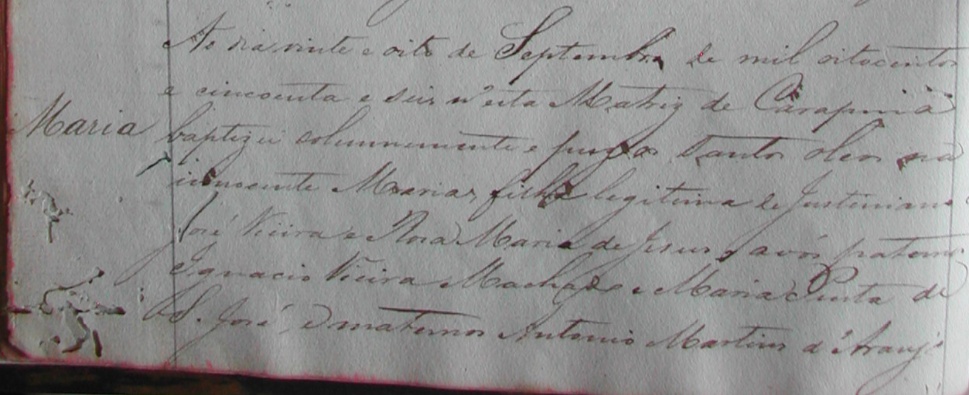 Ao dia vinte e oito de Septembro de mil oitocentos
e cincoenta e seis n'esta Matriz de Carapina
Maria
baptizei solemnemente e puz os Santos oleos na
innocente Maria, filha legitima de Justiniano
José Vieira e Rosa Maria de Jesus, avós paternos
Ignacio Vieira Machado e Maria Pinta de
S. José, e maternos Antonio Martins d'Araujo